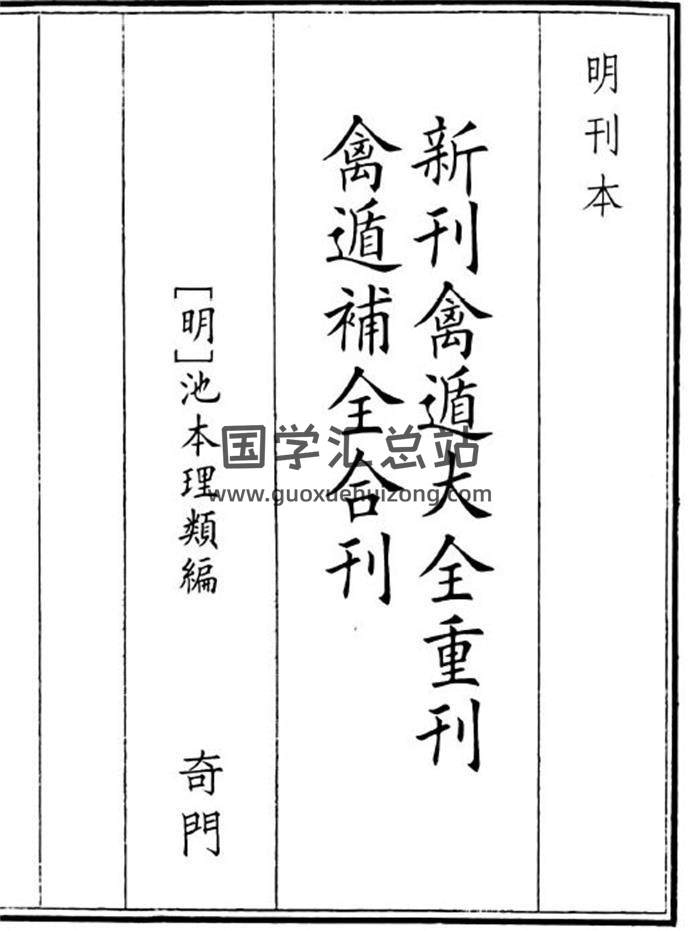 明刊本
新刊禽遁大全重刊
禽遁補全合刊
[明]池本理類編
奇門
国学汇总站
www.guoxuehuizong.com